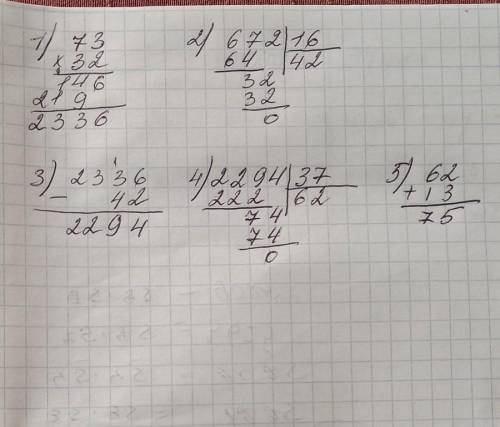 1) 73
× 32
146
219
2336
2) 672 | 16
64 42
32
32
0
3) 2336
- 42
2294
4) 2294 | 37
222 62
74
74
0
5) 62
+ 13
75